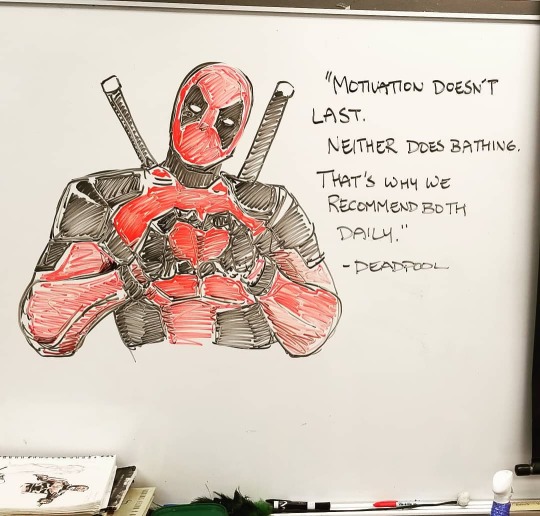 "MOTIVATION DOESN'T
LAST.
NEITHER DOES BATHING.
THAT'S WHY WE
RECOMMEND BOTH
DAILY."
-DEADPOOL